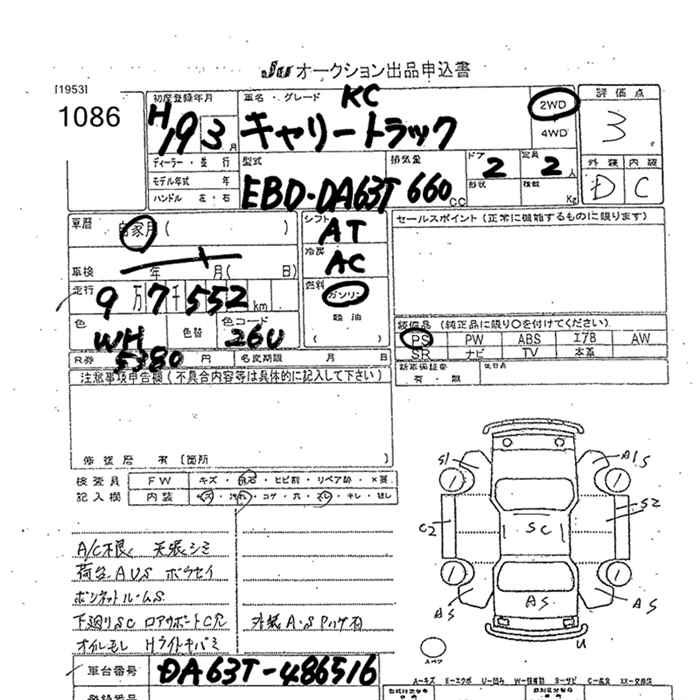 JU オークション出品申込書
[1953]
1086
初度登録年月
H19 3月
車名・グレード KC
キャリートラック
2WD
4WD
評価点
3
外装 内装
D C
ディーラー・並行
モデル年式 年
ハンドル 左・右
型式
EBD-DA63T
排気量
660 CC
ドア 2
定員 2人
形状
積載 Kg
車歴 自家用 ( )
車検 年 月( 日)
走行 9万7千552km
シフト AT
冷房 AC
燃料 ガソリン
軽油
( )
色 WH
色替
色コード 26U
R券 5380円
名変期限 月 日
セールスポイント (正常に機能するものに限ります)
装備品 (純正品に限り○を付けてください)
PS PW ABS エアB AW
SR ナビ TV 本革
新車保証書
有・無
注意事項申告欄 (不具合内容等は具体的に記入して下さい)
修復歴 有 (箇所
検査員 FW キズ・飛石・ヒビ割・リペア跡・×要
記入欄 内装 キズ・汚れ・コゲ・穴・スレ・キレ・欠し
A/C不良 天張シミ
荷台AUS ボウセイ
ボンネットルームS
下廻りSC ロアサポートC穴 外装A・S 有
オイルモレ Hライトキバミ
S1 A1S
C2 SC S2
AS AS AS
U
スペア
車台番号 DA63T-486516
A-キズ E-エクボ U-凹み W-修理跡 S-サビ C-腐食 XX-交換済
登録番号